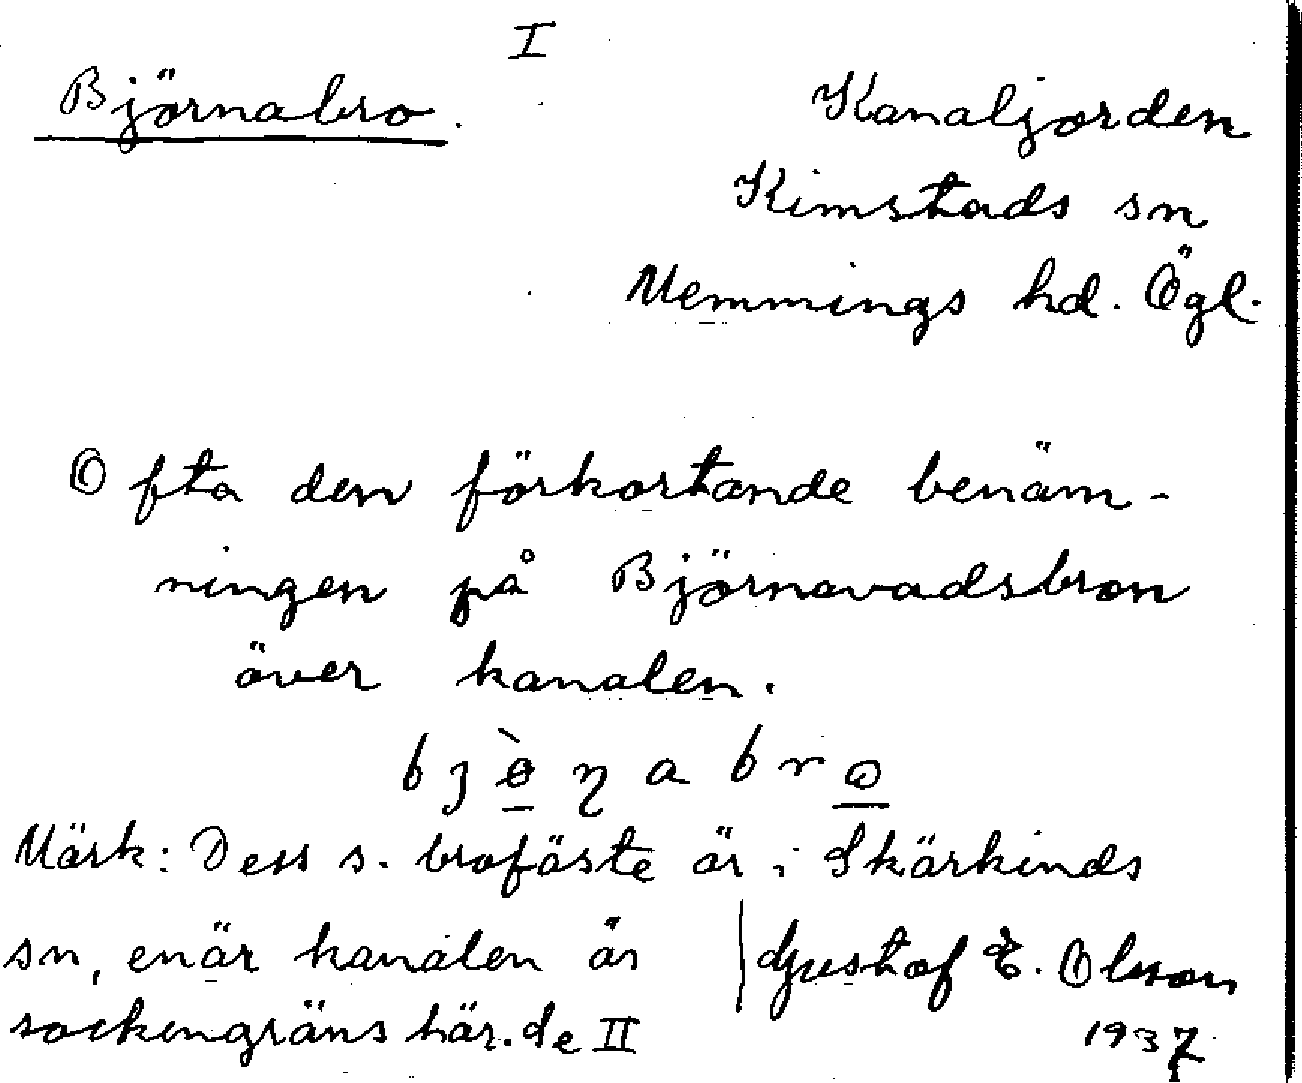 I
Björnabro.
Kanaljorden
Kimstads sn
Memmings hd. Ögl.
Ofta den förkortande benäm-
ningen på Björnavadsbron
över kanalen.
bjɵ̀ɳabro
Märk: Dess s. brofäste är i Skärkinds
sn, enär kanalen är
sockengräns här. Se II
Gustaf E. Olsson
1937